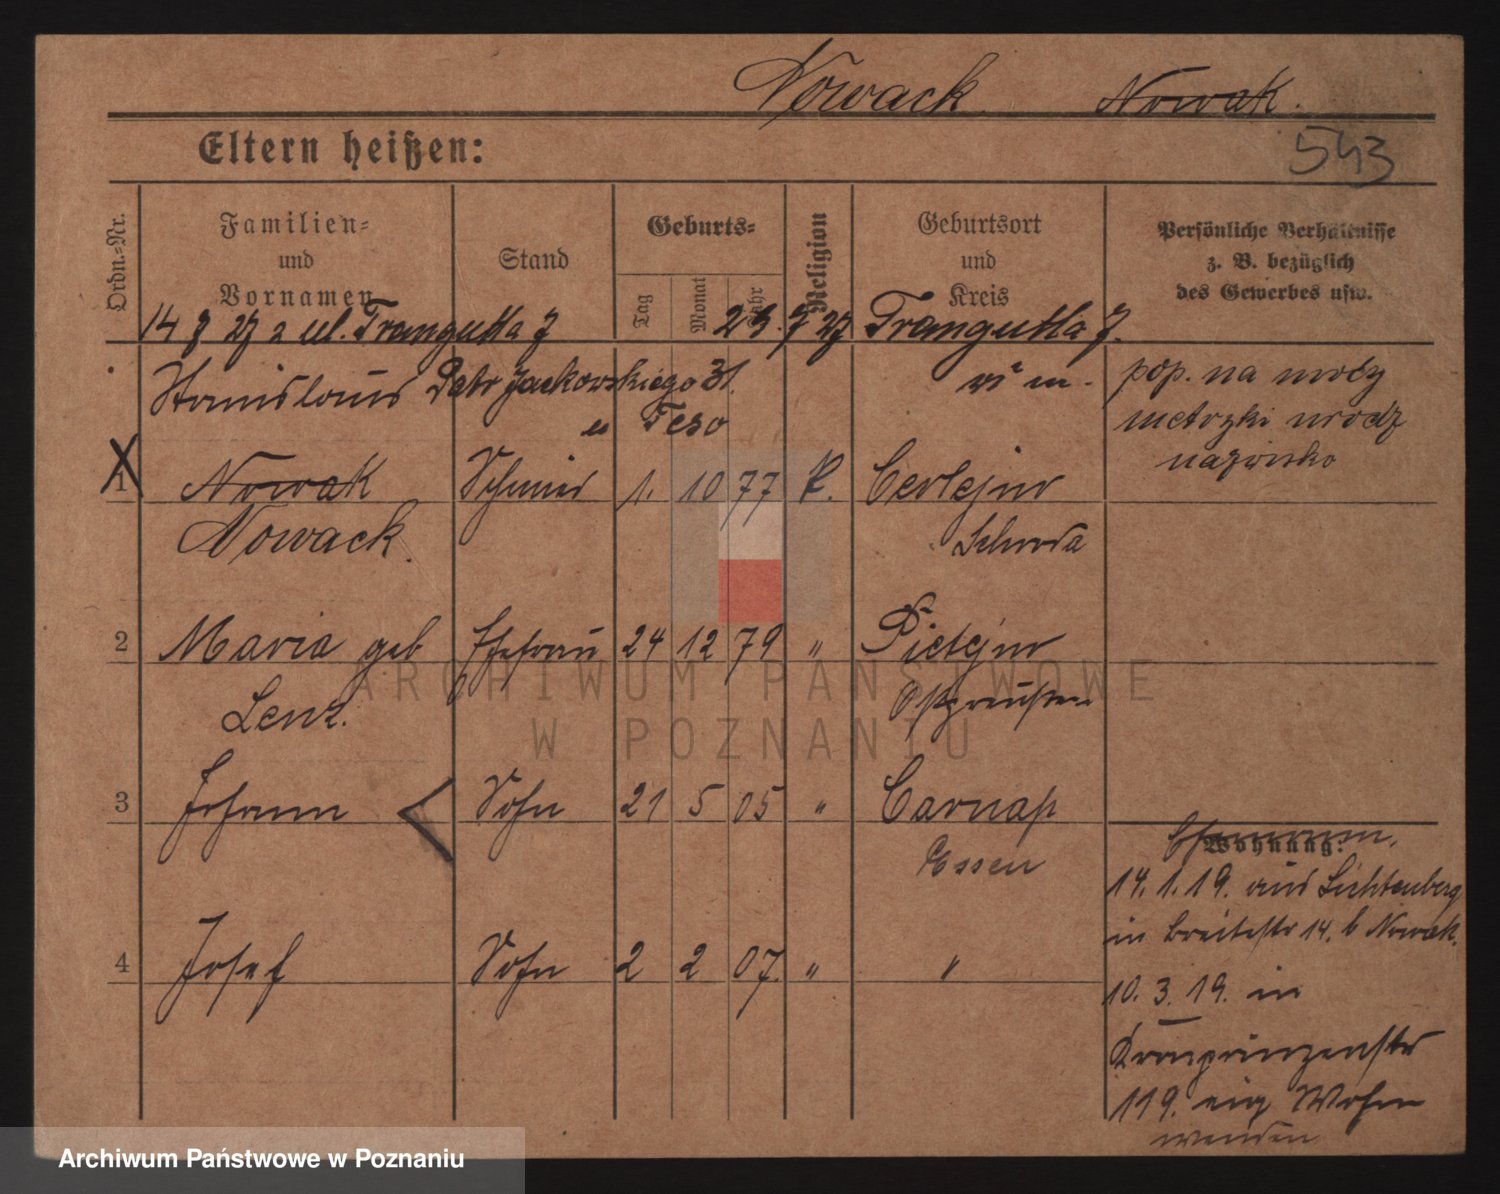 Nowack Nowak.
543
Eltern heißen:
Ordn.-Nr.
Familien-
und
Vornamen
Stand
Geburts-
Tag
Monat
Jahr
Religion
Geburtsort
und
Kreis
Persönliche Verhältnisse
z. B. bezüglich
des Gewerbes usw.
14 7 27 a ul. Traugutta 7
23. 7 27 Traugutta 7.
Stanislaus
Jackowskiego 31.
pop. na mocy
metryki urodz
nazwisko
1 Nowak Schmied 1. 10 77 k.
Nowack.
Schroda
2 Maria geb Ehefrau 24 12 79 "
Lenz.
Ostpreußen
3 Johann Sohn 21 5 05 " Carnap
Essen
4 Josef Sohn 2 2 07. " "
Wohnung:
14. 1. 19. aus Lichtenberg
in Breitestr 14. b Nowak.
10. 3. 19. in
Kronprinzenstr
119. eig Wohn
wenden
ARCHIWUM PAŃSTWOWE
W POZNANIU
Archiwum Państwowe w Poznaniu